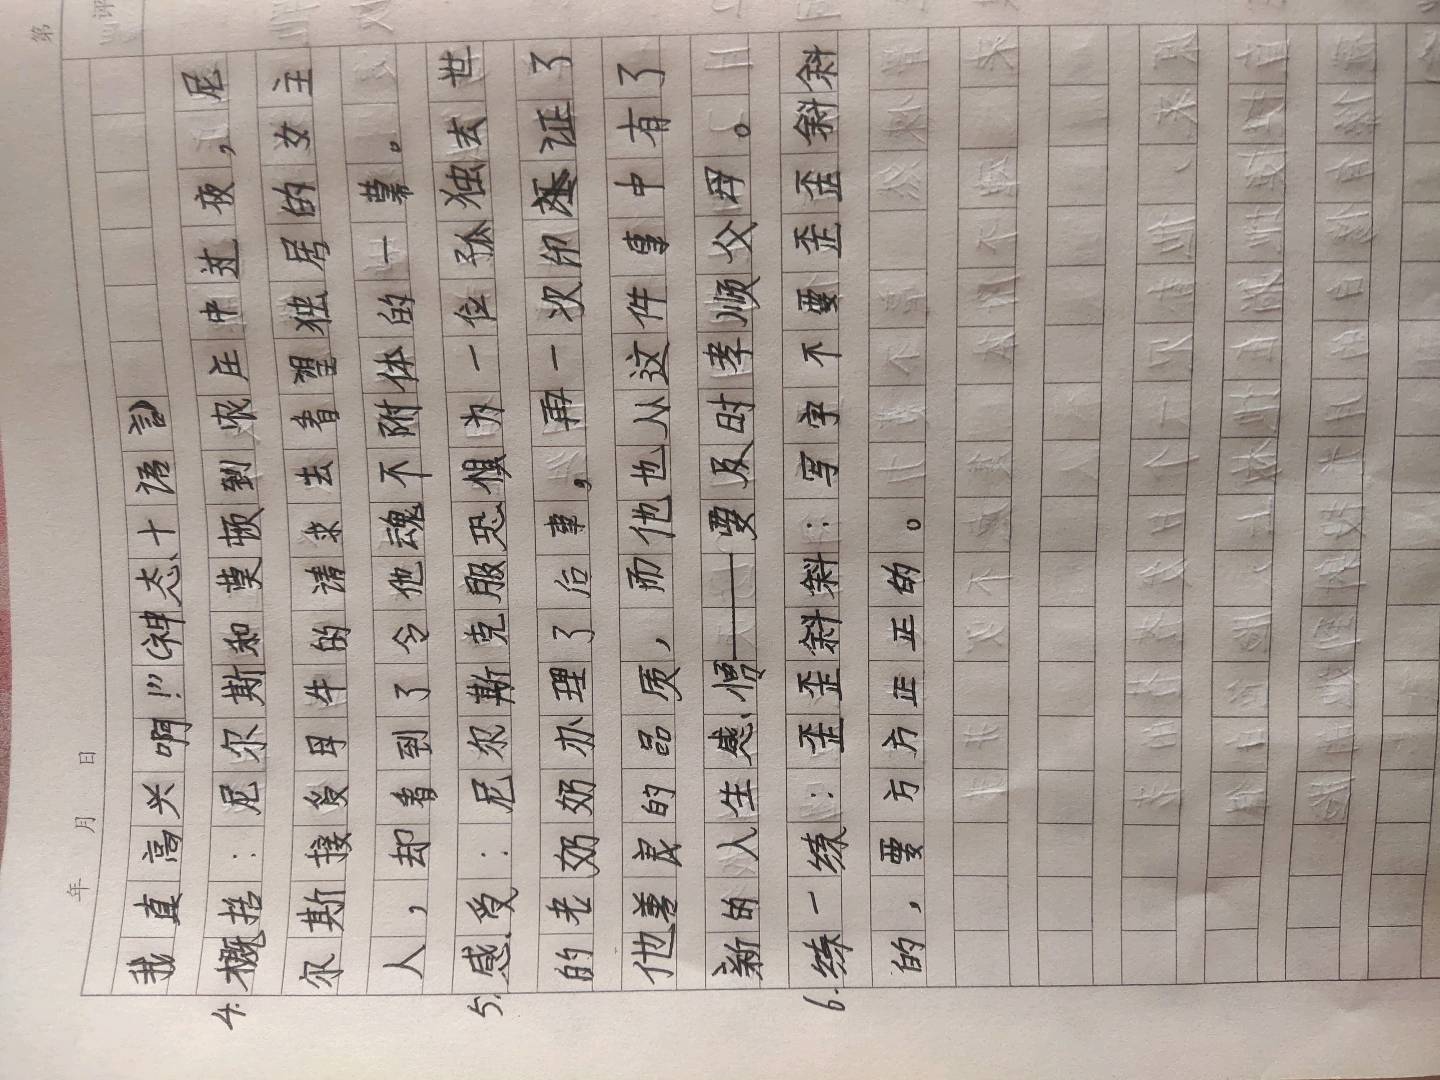 第
评
年 月 日
我真高兴啊!”(神态+语言)
4.概括:尼尔斯和莫顿到农庄中过夜,尼
尔斯接受母牛的请求去看望独居的女主
人,却看到了令他魂不附体的一幕。
5.感受:尼尔斯克服恐惧为一位孤独去世
的老奶奶办理了后事。再一次印证了
他善良的品质,而他也从这件事中有了
新的人生感悟——要及时孝顺父母。
6.练一练:歪歪斜斜:写字不要歪歪斜斜
的,要方方正正的。